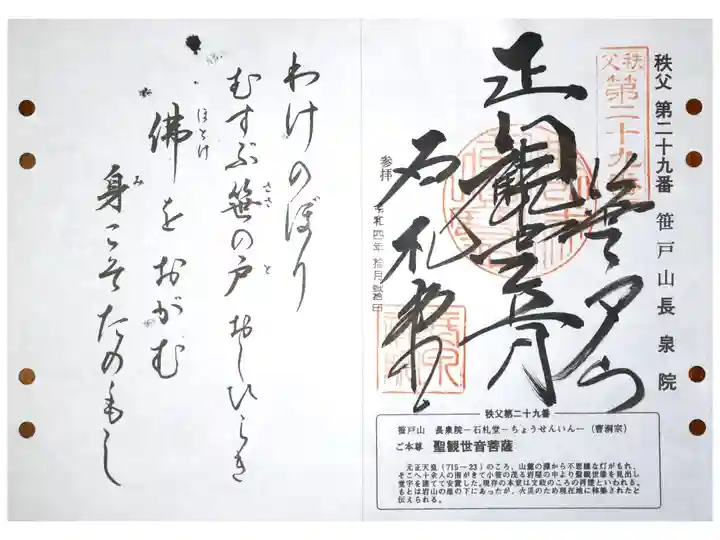 秩父 第二十九番 笹戸山長泉院
秩父
第二十九番
正観世音
笹戸山
石札堂
参拝
令和四年 拾月 弐拾日
わけのぼり
むすぶ笹の戸 おしひらき
ささ と
佛をおがむ
ほとけ
身こそたのもし
み
秩父第二十九番
笹戸山 長泉院－石札堂－ちょうせんいん－（曹洞宗）
ご本尊 聖観世音菩薩
元正天皇（715－23）のころ、山麓の淵から不思議な灯がもれ、
そこへ十余人の僧がきて小笹の茂る岩屋の中より聖観世像を見出し
堂宇を建てて安置した。現存の本堂は文政のころの再建といわれる。
もとは岩山の崖の下にあったが、火災のため現在地に移築されたと
伝えられる。